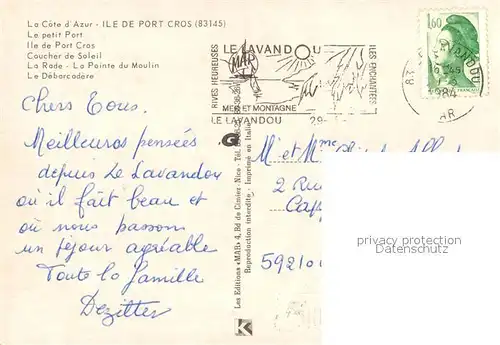 La Côte d'Azur - ILE DE PORT CROS (83145)
Le petit Port
Ile de Port Cros
Coucher de Soleil
La Rade - La Pointe du Moulin
Le Débarcadère
Chers Tous.
Meilleures pensées
depuis Le Lavandou
où il fait beau et
où nous passons
un séjour agréable
Toute la famille
Dezitter
Les Editions «MAR» 4, Bd de Cimiez - Nice - Tél.
Reproduction interdite - Imprimé en Italie
K
RIVES HEUREUSES
LE LAVANDOU
ILES ENCHANTEES
MER ET MONTAGNE
LE LAVANDOU
1,60
83
LAVANDOU
1984
VAR
M et Mme
2 Rue
Cap
59210
privacy protection
Datenschutz